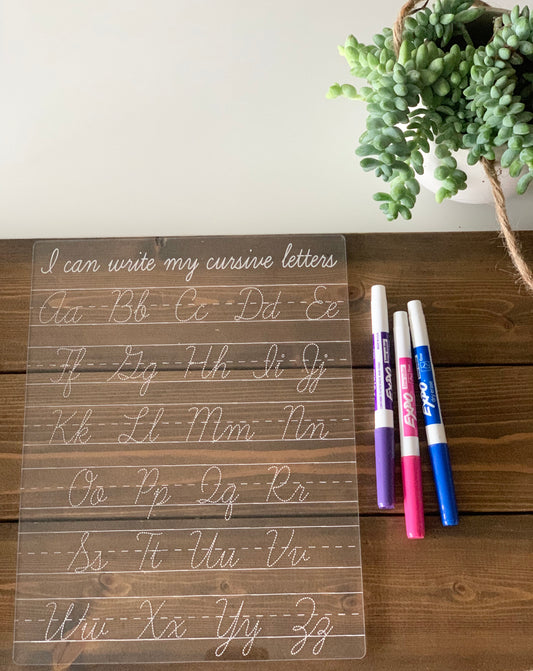 I can write my cursive letters
Aa Bb Cc Dd Ee
Ff Gg Hh Ii Jj
Kk Ll Mm Nn
Oo Pp Qq Rr
Ss Tt Uu Vv
Ww Xx Yy Zz
EXPO
EXPO
EXPO